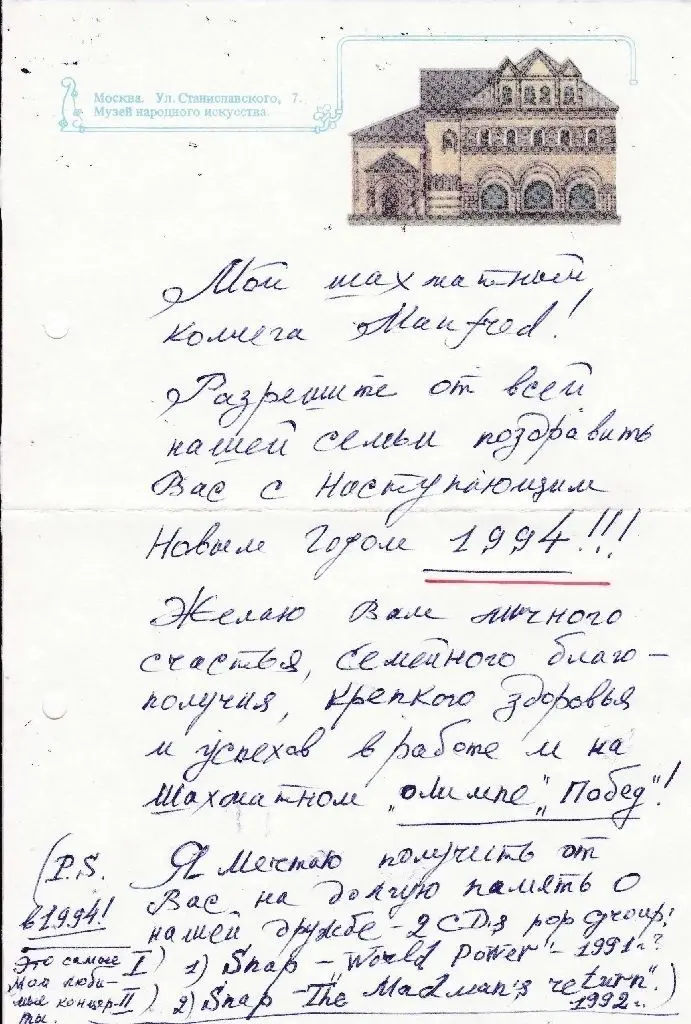 Москва. Ул. Станиславского, 7.
Музей народного искусства.
Мой шахматный
коллега Manfred!
Разрешите от всей
нашей семьи поздравить
Вас с Наступающим
Новым Годом 1994!!!
Желаю Вам личного
счастья, семейного благо-
получия, крепкого здоровья
и успехов в работе и на
Шахматном „олимпе„ Побед"!
(P.S. Я мечтаю получить от
в 1994! Вас на долгую память о
нашей дружбе - 2 CDs pop group:
Это самые I) 1) Snap - „World Power" - 1991 г.?
Мои люби- II) 2) Snap - „The Madman's return".)
мые концер- 1992 г.
ты.